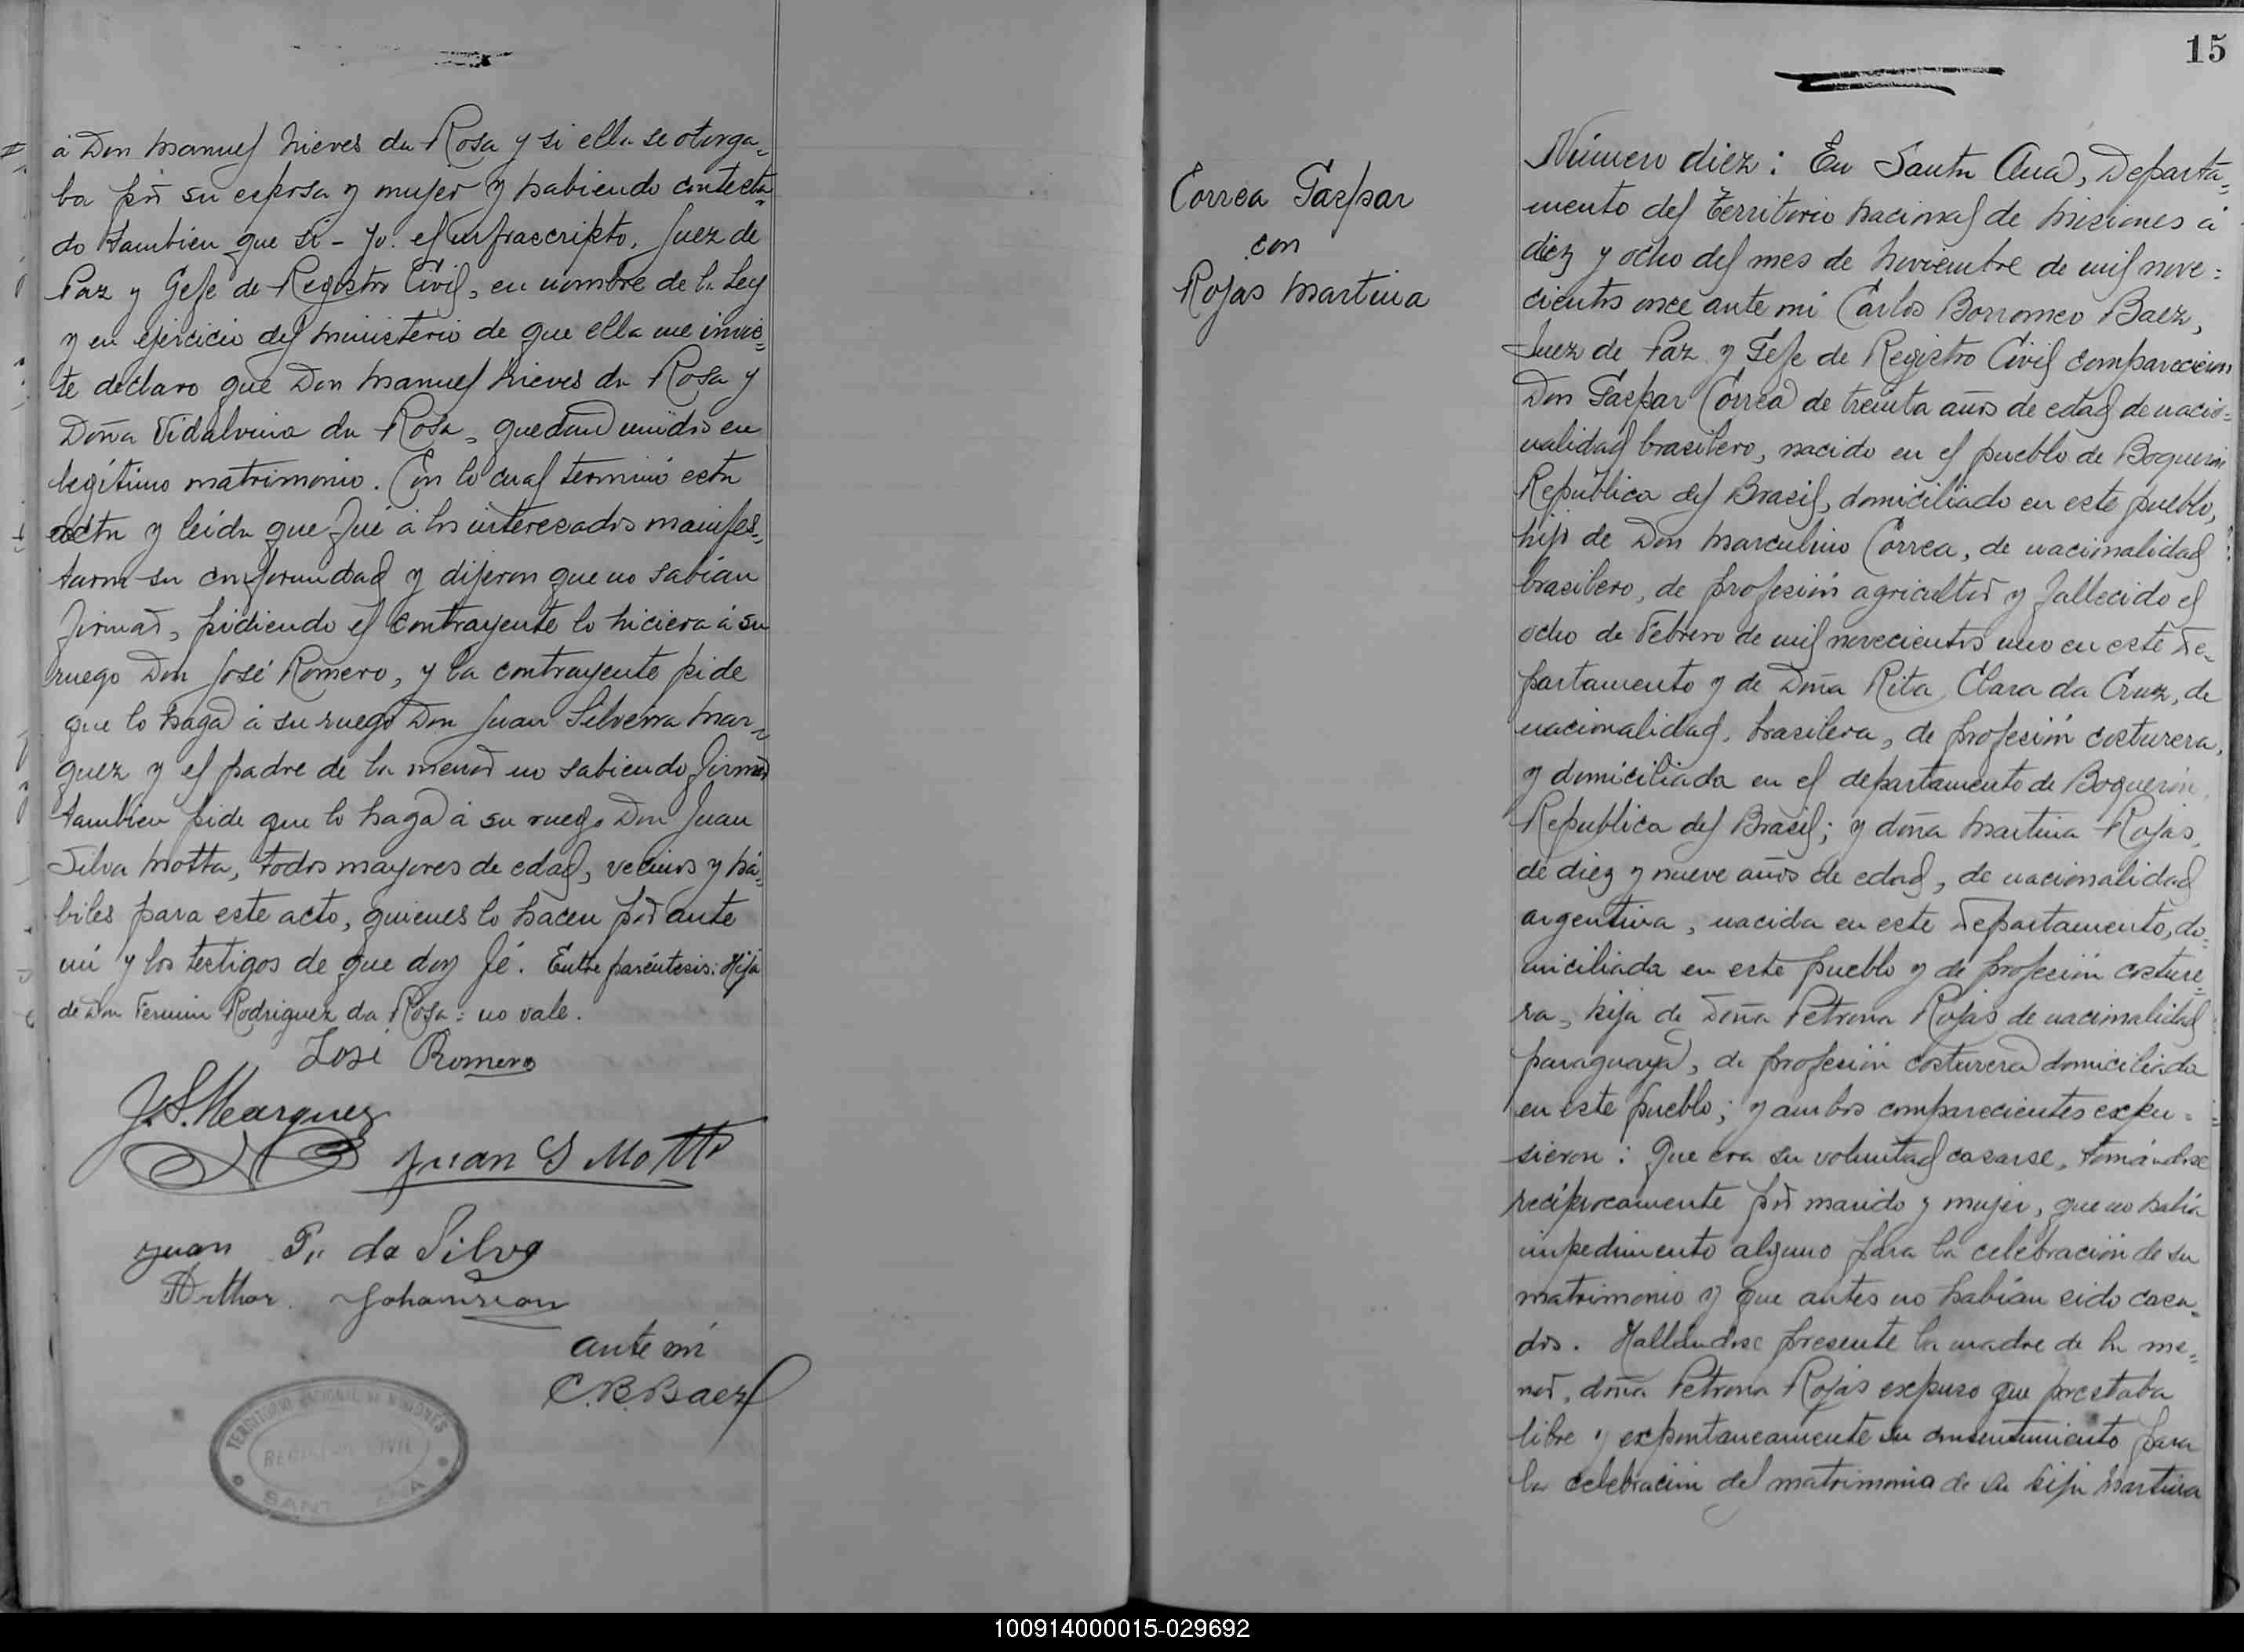 á Don Manuel Nieves da Rosa y si ella se otorga=
ba por su esposa y mujer y habiendo contesta=
do tambien que si - Yo. el infrascripto, Juez de
Paz y Gefe de Registro Civil, en nombre de la Ley
y en ejercicio del ministerio de que ella me invis=
te declaro que Don Manuel Nieves da Rosa y
Doña Vidalvina da Rosa, quedan unidos en
legítimo matrimonio. Con lo cual terminó esta
acta y leida que fué á los interesados manifes=
taron su conformidad y dijeron que no sabían
firmar, pidiendo el contrayente lo hiciera á su
ruego Don José Romero, y la contrayente pide
que lo haga á su ruego Don Juan Silveira Mar=
quez y el padre de la menor no sabiendo firmar
tambien pide que lo haga á su ruego Don Juan
Silva Motta, todos mayores de edad, vecinos y há=
biles para este acto, quienes lo hacen por ante
mí y los testigos de que doy fé. Entre paréntesis: Hija
de Don Fermin Rodriguez da Rosa: no vale.
José Romero
J. S. Marquez
Juan S Motta
Juan P. da Silva
Arthor Johansson
ante mí
C. B. Baez
TERRITORIO NACIONAL DE MISIONES
REGISTRO CIVIL
SANTA ANA
15
Correa Gaspar
con
Rojas Martina
Número diez: En Santa Ana, Departa=
mento del Territorio Nacional de Misiones á
diez y ocho del mes de Noviembre de mil nove=
cientos once ante mi Carlos Borromeo Baez,
Juez de Paz y Gefe de Registro Civil comparecieron
Don Gaspar Correa de treinta años de edad de nacio=
nalidad brasilero, nacido en el pueblo de Boqueron
República del Brasil, domiciliado en este pueblo,
hijo de Don Marculino Correa, de nacionalidad
brasilero, de profesión agricultor y fallecido el
ocho de Febrero de mil novecientos uno en este De=
partamento y de Doña Rita Clara da Cruz, de
nacionalidad, brasilera, de profesión costurera,
y domiciliada en el departamento de Boquerón,
Republica del Brasil; y doña Martina Rojas,
de diez y nueve años de edad, de nacionalidad
argentina, nacida en este Departamento, do=
miciliada en este pueblo y de profesión costure=
ra, hija de Doña Petrona Rojas de nacionalidad
paraguaya, de profesión costurera domiciliada
en este pueblo; y ambos comparecientes expu=
sieron: Que era su voluntad casarse, tomándose
recíprocamente por marido y mujer, que no había
impedimento alguno para la celebración de su
matrimonio y que antes no habían sido casa=
dos. Hallándose presente la madre de la me=
nor, doña Petrona Rojas expuso que prestaba
libre y expontaneamente su consentimiento para
la celebración del matrimonio de su hija Martina
100914000015-029692